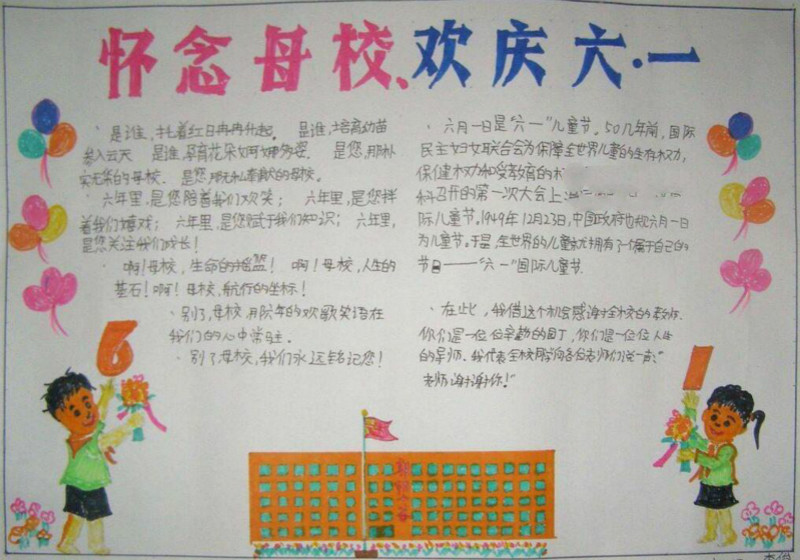 怀念母校、欢庆六·一
是谁，托着红日冉冉升起。 是谁，培育幼苗
参入云天 是谁，孕育花朵如何婀娜多姿． 是您，那朴
实无华的母校． 是您，那无私奉献的母校．
六年里，是您陪着我们欢笑； 六年里，是您伴
着我们嬉戏； 六年里，是您赋于我们知识； 六年里，
是您关注我们成长！
啊！母校，生命的摇篮！ 啊！母校，人生的
基石！啊！母校，航行的坐标！
别了，母校，用陈年的欢歌笑语在
我们的心中常驻．
别了母校，我们永远铭记您！
六月一日是“六一”儿童节．50几年前，国际
民主妇女联合会为保障全世界儿童的生存权力，
保健权力和受教育的
科召开的第一次大会上
际儿童节．1949年12月23日，中国政府也规六月一日
为儿童节．于是，全世界的儿童就拥有了一个属于自己的
节日——“六一”国际儿童节．
在此，我借这个机会感谢全校的教师．
你们是一位位辛勤的园丁，你们是一位位人生
的导师．我代表全校同学向各位老师们说一声：“
老师谢谢你！”
6
1